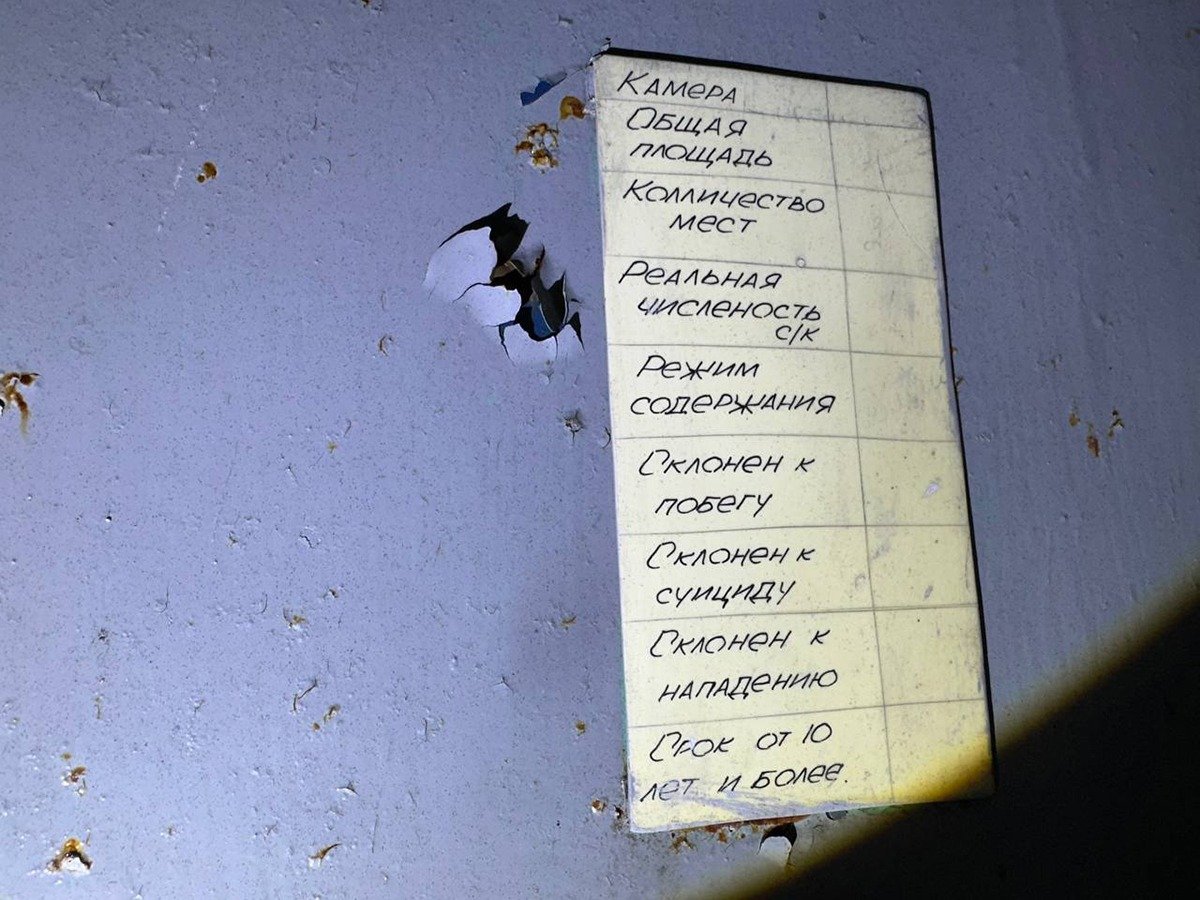 Камера
Общая
площадь
Колличество
мест
Реальная
численость
с/к
Режим
содержания
Склонен к
побегу
Склонен к
суициду
Склонен к
нападению
Срок от 10
лет и более.